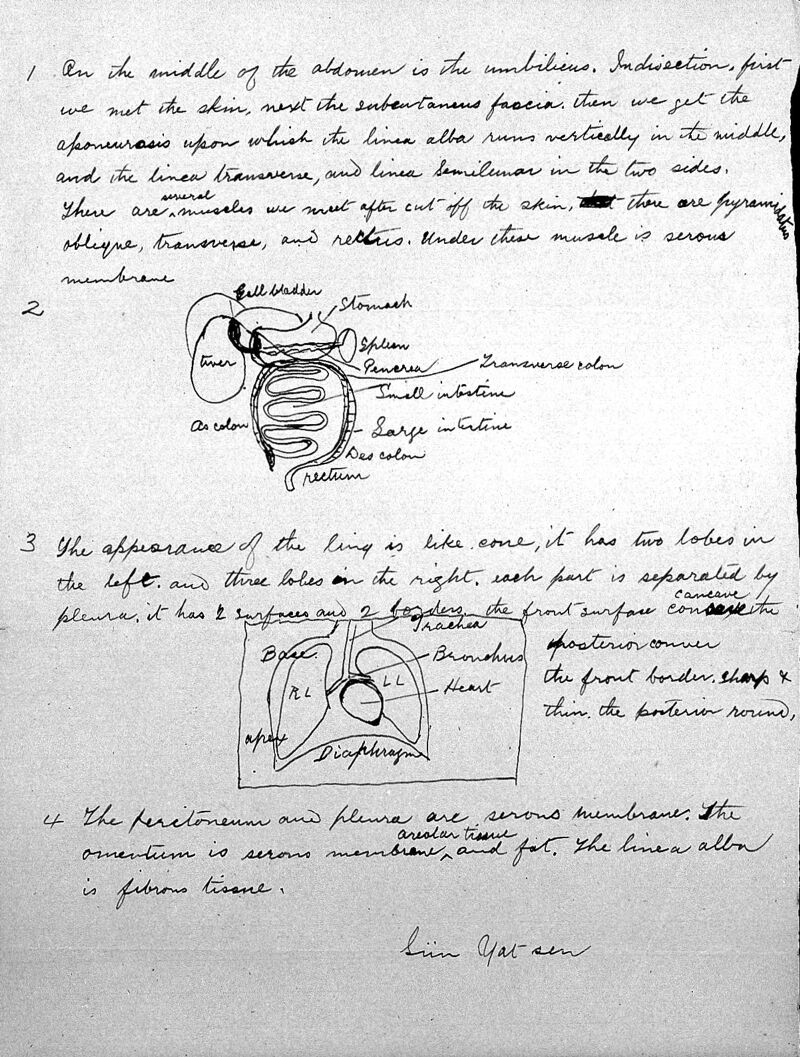 1 On the middle of the abdomen is the umbilicus. Indisection, first
we met the skin, next the subcutaneus fascia. then we get the
aponeurosis upon which the linea alba runs vertically in the middle,
and the linea transverse, and linea Semilunar in the two sides.
There are several muscles we meet after cut off the skin, there are pyramidatus
oblique, transverse, and rectus. Under these muscle is serous
membrane
2
Gall bladder
Stomach
Spleen
liver
Pencrea
Transverse colon
Small intestine
As colon
Large intertine
Des colon
rectum
3 The appearance of the lung is like cone, it has two lobes in
the left. and three lobes in the right. each part is separated by
pleura. it has 2 surfaces and 2 borders. the front surface concave, the
posterior conver
the front border. sharp &
thin. the posterior round,
Trachea
Base
Bronchus
RL
LL
Heart
apex
Diaphragm
4 The peritoneum and pleura are serous membrane. The
omentum is serous membrane, areolar tissue and fat. The linea alba
is fibrous tissue.
Sün Yat sen